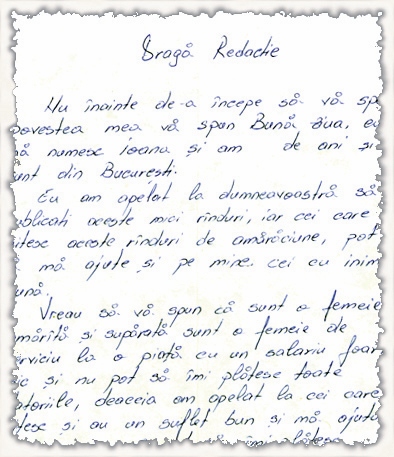 Dragă Redacție
Nu înainte de-a începe să vă sp
povestea mea vă spun Bună ziua, eu
mă numesc Ioana și am de ani și
unt din București.
Eu am apelat la dumneavoastră să
ublicati aceste mici rînduri, iar cei care
itesc aceste rînduri de amărăciune, pot
mă ajute și pe mine cei cu inim
ună.
Vreau să vă spun că sunt o femeie
mărîtă și supărată sunt o femeie de
erviciu la o piață cu un salariu foar
ic și nu pot să îmi plătesc toate
atoriile, deaceia am apelat la cei care
tesc și au un suflet bun și mă ajuta
îmi plătesc